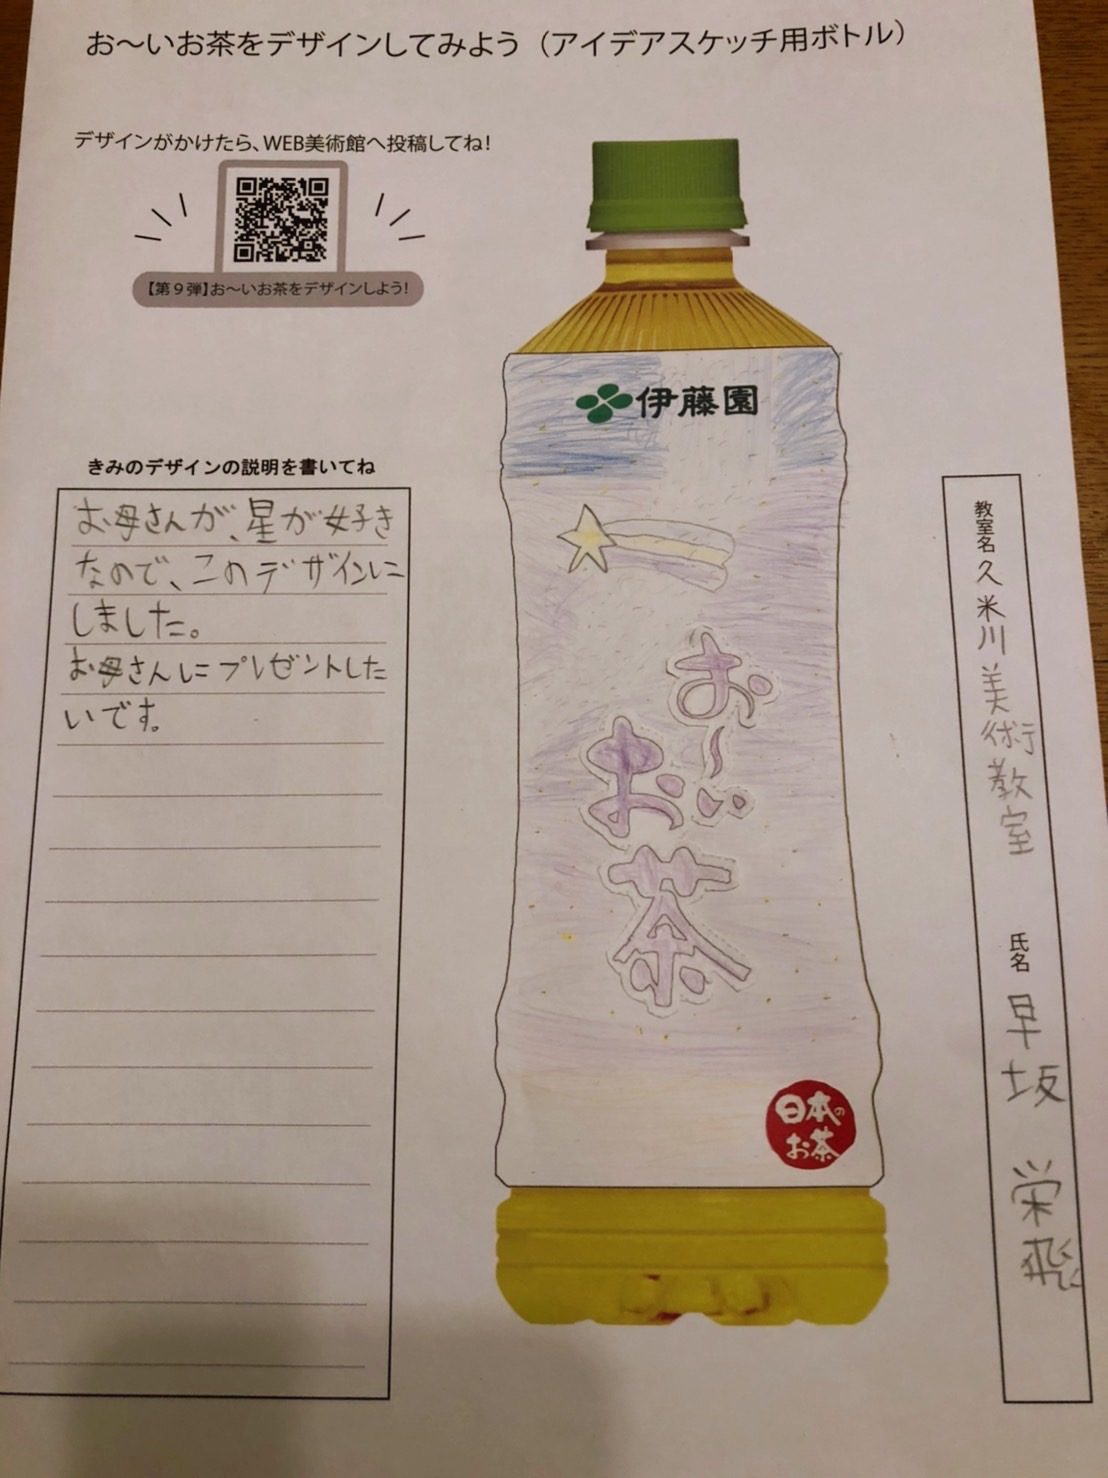 お～いお茶をデザインしてみよう（アイデアスケッチ用ボトル）
デザインがかけたら、WEB美術館へ投稿してね!
【第９弾】お～いお茶をデザインしよう!
きみのデザインの説明を書いてね
お母さんが、星が好き
なので、このデザインに
しました。
お母さんにプレゼントした
いです。
伊藤園
お～い
お茶
日本の
お茶
教室名 久米川美術教室
氏名 早坂 栄飛